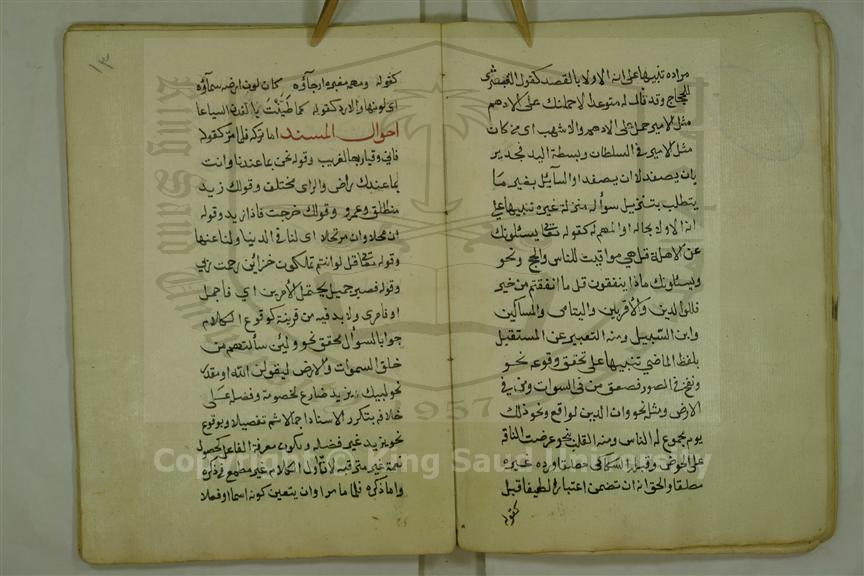 مراده تنبيها على انه الاولى بالقصد كقول القبعثرى
للحجاج وقد قال له متوعدا لاحملنك على الادهم
مثل الامير حمل على الادهم والاشهب اى من كان
مثل الامير فى السلطان وبسطة اليد فجدير
بان يصفد لا ان يصفد او السائل بغير ما
يتطلب بتنزيل سؤاله منزلة غيره تنبيها على
انه الاولى بحاله او المهم له كقوله تعالى يسئلونك
عن الاهلة قل هى مواقيت للناس والحج ونحو
ويسئلونك ماذا ينفقون قل ما انفقتم من خير
فللوالدين والاقربين واليتامى والمساكين
وابن السبيل ومنه التعبير عن المستقبل
بلفظ الماضى تنبيها على تحقق وقوعه نحو
ونفخ فى الصور فصعق من فى السموات ومن فى
الارض ومثله نحو وان الدين لواقع ونحو ذلك
يوم مجموع له الناس ومنه القلب نحو عرضت الناقة
على الحوض وقبله السكاكى مطلقا ورده غيره
مطلقا والحق انه ان تضمن اعتبارا لطيفا قبل
كقوله
١٣
كقوله ومهمه مغبرة ارجاؤه كان لون ارضه سماؤه
اى لونها والا رد كقوله كما طينت بالفدن السياعا
احوال المسند اما تركه فلما مر كقوله
فانى وقيار بها لغريب وقوله نحن بما عندنا وانت
بما عندك راض والراى مختلف وقولك زيد
منطلق وعمرو وقولك خرجت فاذا زيد وقوله
ان محلا وان مرتحلا اى لنا فى الدنيا ولنا عنها
وقوله تعالى قل لو انتم تملكون خزائن رحمة ربى
وقوله فصبر جميل يحتمل الامرين اى فاجمل
او فامرى ولا بد فيه من قرينة كوقوع الكلام
جوابا لسؤال محقق نحو ولئن سألتهم من
خلق السموات والارض ليقولن الله او مقدر
نحو ليبك يزيد ضارع لخصومة وفضله على
خلافه بتكرر الاسناد اجمالا ثم تفصيلا وبوقوع
نحو يزيد غير فضلة وبكون معرفة الفاعل كحصول
نعمة غير مترقبة لان اول الكلام غير مطمع فى ذكره
واما ذكره فلما مر او ان يتعين كونه اسما او فعلا
Copyright © King Saud University
1957